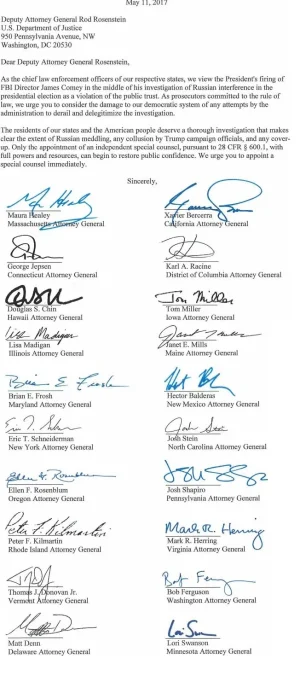 May 11, 2017
Deputy Attorney General Rod Rosenstein
U.S. Department of Justice
950 Pennsylvania Avenue, NW
Washington, DC 20530
Dear Deputy Attorney General Rosenstein,
As the chief law enforcement officers of our respective states, we view the President's firing of
FBI Director James Comey in the middle of his investigation of Russian interference in the
presidential election as a violation of the public trust. As prosecutors committed to the rule of
law, we urge you to consider the damage to our democratic system of any attempts by the
administration to derail and delegitimize the investigation.
The residents of our states and the American people deserve a thorough investigation that makes
clear the extent of Russian meddling, any collusion by Trump campaign officials, and any cover-
up. Only the appointment of an independent special counsel, pursuant to 28 CFR § 600.1, with
full powers and resources, can begin to restore public confidence. We urge you to appoint a
special counsel immediately.
Sincerely,
Maura Healey
Massachusetts Attorney General
Xavier Becerra
California Attorney General
George Jepsen
Connecticut Attorney General
Karl A. Racine
District of Columbia Attorney General
Douglas S. Chin
Hawaii Attorney General
Tom Miller
Tom Miller
Iowa Attorney General
Lisa Madigan
Lisa Madigan
Illinois Attorney General
Janet T. Mills
Janet E. Mills
Maine Attorney General
Brian E. Frosh
Brian E. Frosh
Maryland Attorney General
Hector Balderas
New Mexico Attorney General
Eric T. Schneiderman
New York Attorney General
Josh Stein
Josh Stein
North Carolina Attorney General
Ellen F. Rosenblum
Ellen F. Rosenblum
Oregon Attorney General
Josh Shapiro
Pennsylvania Attorney General
Peter F. Kilmartin
Peter F. Kilmartin
Rhode Island Attorney General
Mark R. Herring
Mark R. Herring
Virginia Attorney General
Thomas J. Donovan Jr.
Vermont Attorney General
Bob Ferguson
Washington Attorney General
Matt Denn
Delaware Attorney General
Lori Swanson
Minnesota Attorney General